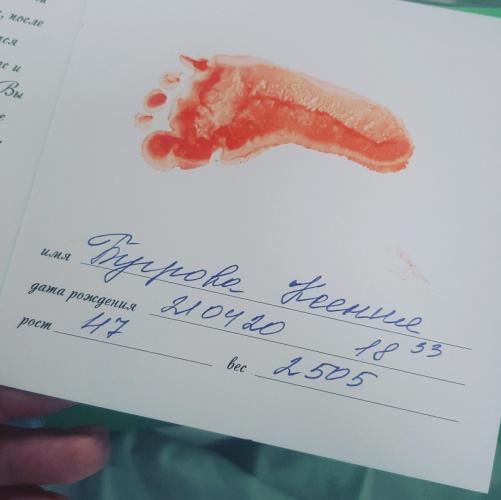 , после
Вы
имя Бугрова Ксения
дата рождения 210420 18 33
рост 47
вес 2505